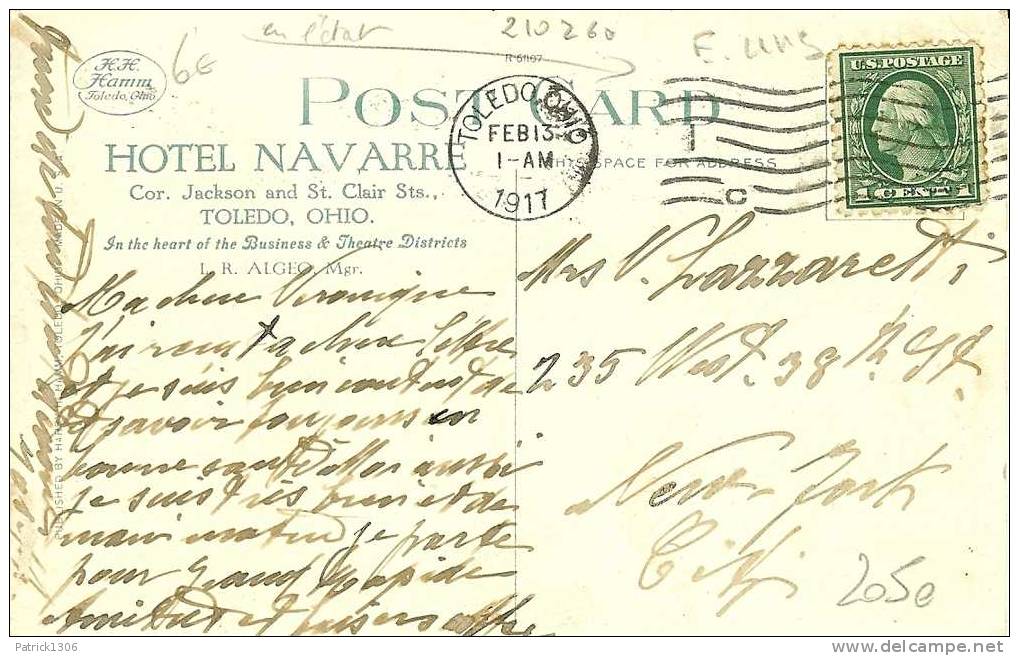 en l'état
210260
6€
R-51107
H.H.
Hamm
Toledo, Ohio
POST CARD
TOLEDO, OHIO
FEB 13
1-AM
1917
C
U.S. POSTAGE
1 CENT 1
HOTEL NAVARRE
SPACE FOR ADDRESS
Cor. Jackson and St. Clair Sts.,
TOLEDO, OHIO.
In the heart of the Business & Theatre Districts
L. R. ALGEO, Mgr.
Ma chere Veronique
J'ai recu ta chere lettre
et je suis bien content de
savoir toujours en
bonne santé Moi aussi
je suis très bien et de
main matin je parte
pour Grand Rapide
Amitiés et baisers
Mrs V. Lazzaretti
235 West. 38 th St
New-York
City
205e
PUBLISHED BY
TOLEDO, OHIO
Patrick1306
www.delcampe.net